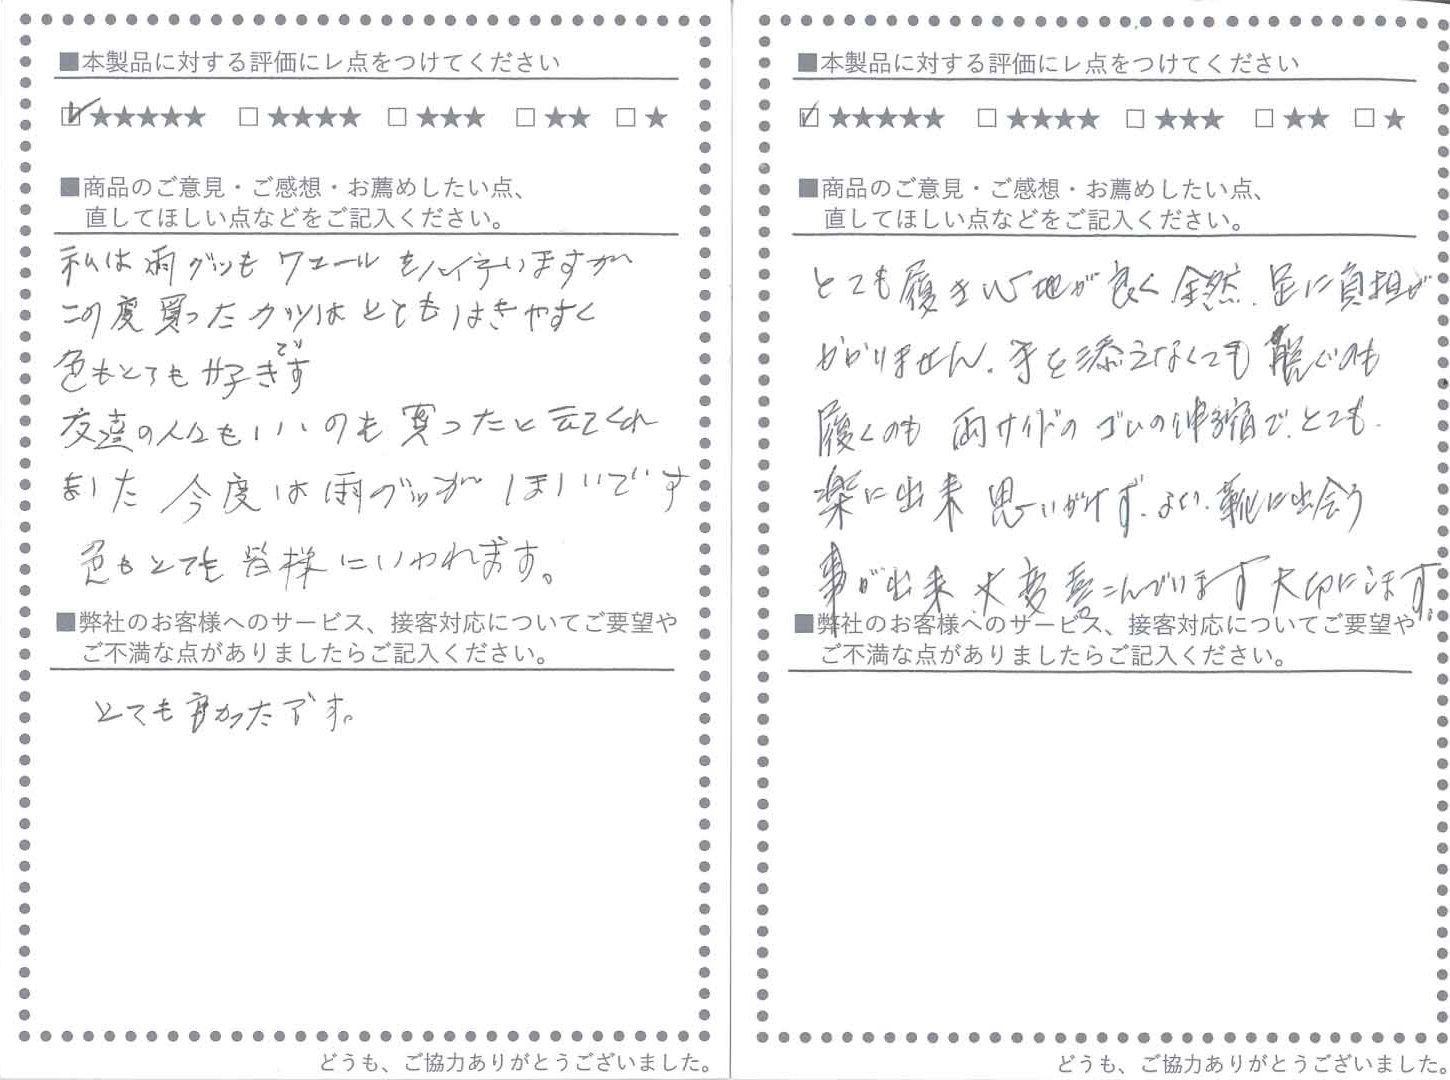 ■本製品に対する評価にレ点をつけてください
☑★★★★★ □★★★★ □★★★ □★★ □★
■商品のご意見・ご感想・お薦めしたい点、
直してほしい点などをご記入ください。
私は雨グツも いますが
この度買ったカツはとてもはきやすく
色もとても好きです
友達の人々もいいのも買ったと云てくれ
ました 今度は雨グツがほしいです
色もとても皆様にいわれます。
■弊社のお客様へのサービス、接客対応についてご要望や
ご不満な点がありましたらご記入ください。
とても良かったです。
どうも、ご協力ありがとうございました。
■本製品に対する評価にレ点をつけてください
☑★★★★★ □★★★★ □★★★ □★★ □★
■商品のご意見・ご感想・お薦めしたい点、
直してほしい点などをご記入ください。
とても履き心地が良く全然、足に負担が
かかりません。手を添えなくても脱ぐのも
履くのも両サイドのゴムの伸縮で、とても、
楽に出来思いがけず、よい、靴に出会う
事が出来大変喜こんでいます大切にします。
■弊社のお客様へのサービス、接客対応についてご要望や
ご不満な点がありましたらご記入ください。
どうも、ご協力ありがとうございました。